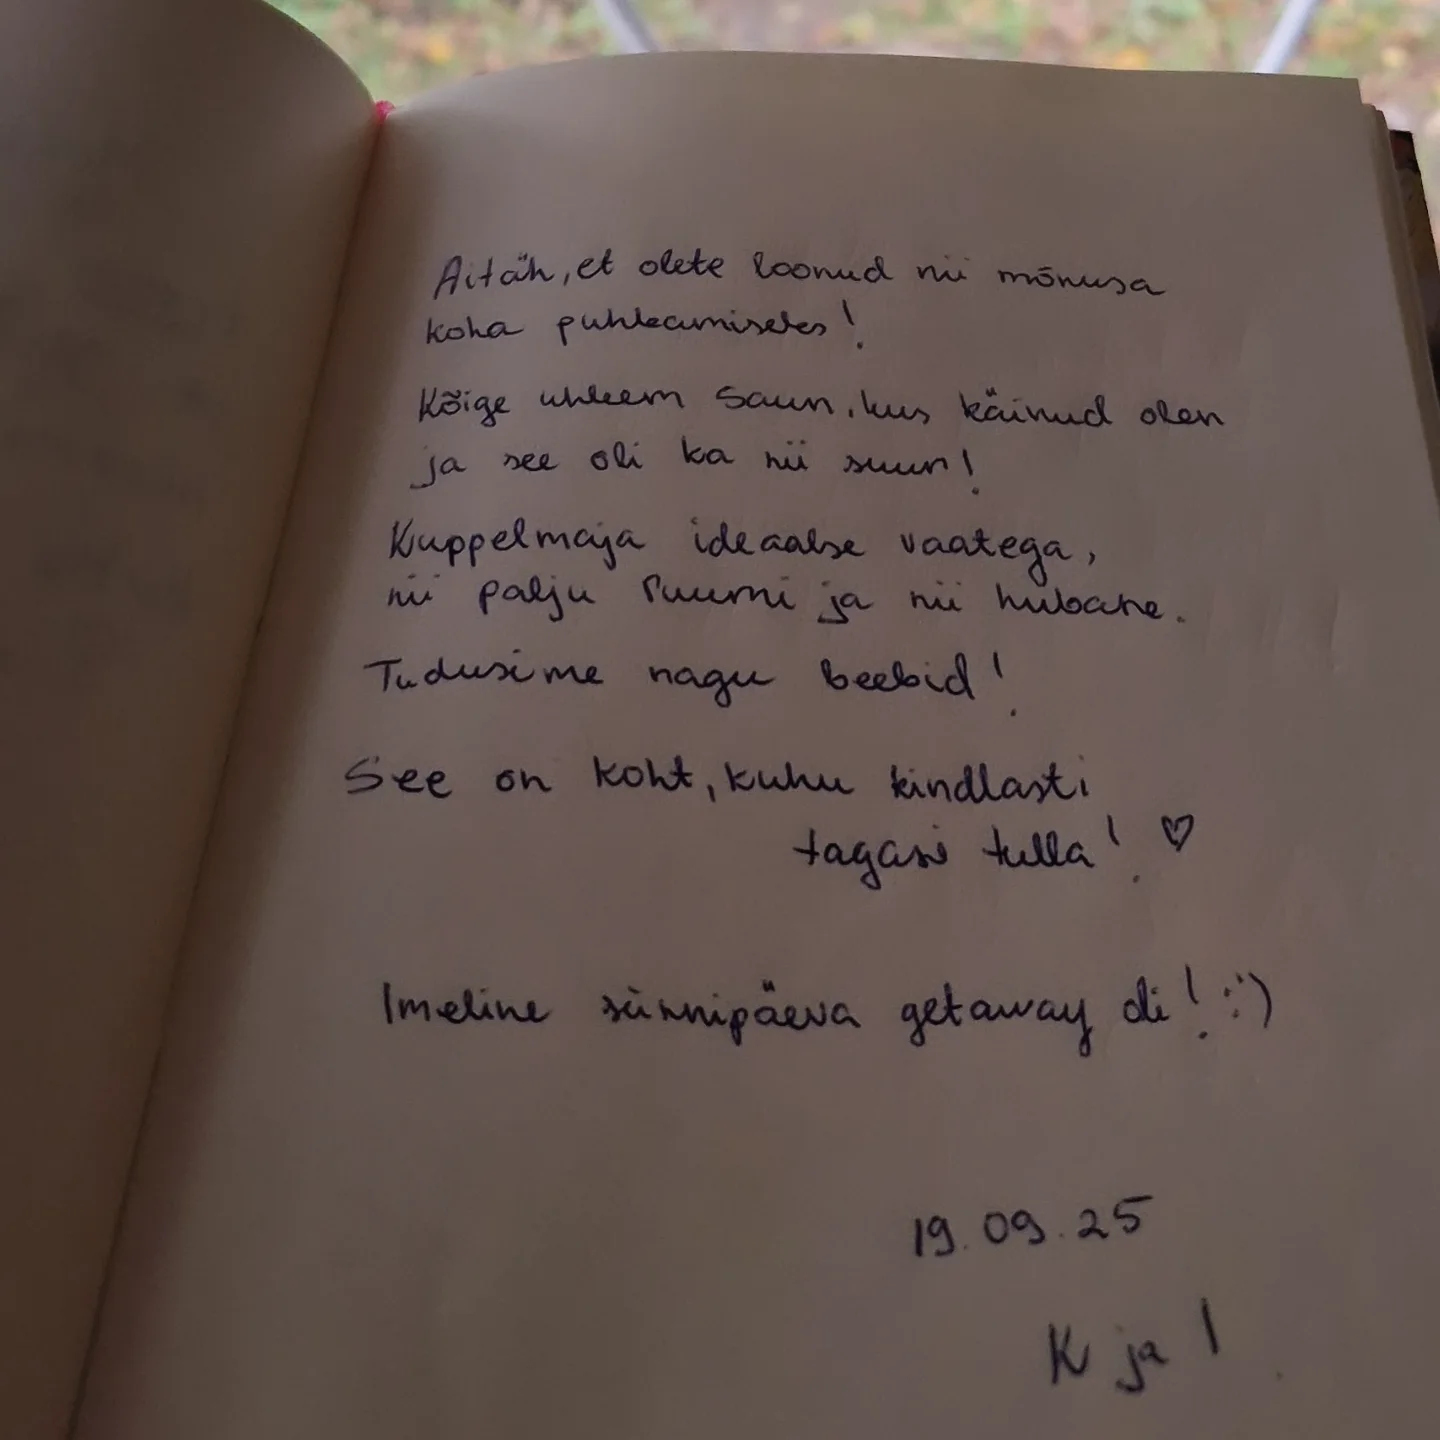 Aitäh, et olete loonud nii mõnusa
koha puhkamiseks!
Kõige uhkem saun, kus käinud olen
ja see oli ka nii suur!
Kuppelmaja ideaalse vaatega,
nii palju ruumi ja nii hubane.
Tudusime nagu beebid!
See on koht, kuhu kindlasti
tagasi tulla! ♡
Imeline sünnipäeva getaway oli! :')
19.09.25
K ja I